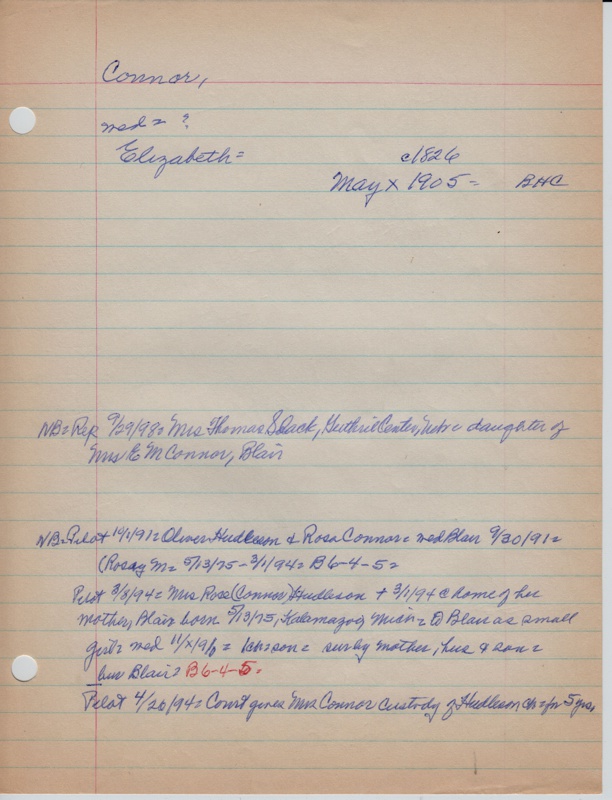 Connor,
wed = ?
Elizabeth = c1826
May x 1905 = BHC
NB = Rep 9/29/98 = Mrs Thomas Slack, Guthrie Center, = daughter of
Mrs E M Connor, Blair
NB = Pilot 10/1/91 = Oliver Hudleson & Rosa Connor = wed Blair 9/30/91 =
(Rosay M = 5/13/75 - 3/1/94 = B6-4-5 =
Pilot 3/8/94 = Mrs Rosa (Connor) Hudleson + 3/1/94 @ home of her
mother, Blair born 5/13/75, Kalamazoo, Mich = Blair as small
girl = wed 11/x/90 = 1ch = son = surv by mother, hus & son =
bur Blair = B6-4-5 =
Pilot 4/26/94 = Court gives Mrs Connor custody of Hudleson ch = for 5 yrs,